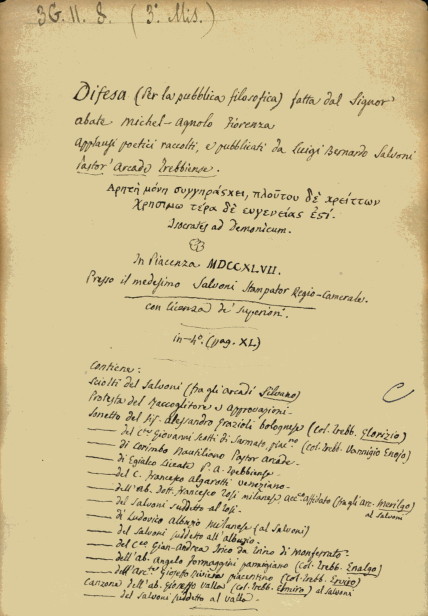 3G. 11. 8. (3ª Mis.)
Difesa (Per la pubblica filosofica) fatta dal Signor
abate Michel-Agnolo Fiorenza
Applausi poetici raccolti, e pubblicati da Luigi Bernardo Salvoni
Pastor' Arcade Trebbiense.
Αρητή μόνη συγγηράσκει, πλούτου δὲ χρείττων
Χρησιμω τέρα δὲ ευγενείας ἐςί.
Isocrates ad Demonicum.
In Piacenza MDCCXLVII.
Presso il medesimo Salvoni Stampator Regio-Camerale.
con licenza de' Superiori.
in-4º. (pag. XL)
Contiene:
Sciolti del Salvoni (fra gli Arcadi Silvano)
Protesta del Raccoglitore e Approvazioni-
Sonetto del Sig. Alessandro Grazioli bolognese (col. Trebb. Glorizio)
del Cte Giovanni Scotti di Sarmato piac.no (col. Trebb. Vannigio Enojo)
di Corimbo Nautiliano Pastor Arcade-
di Egialco Liceate P. A. Trebbiense-
del C. Francesco Algarotti veneziano-
dell'ab. Dott. Francesco Tosi milanese Acc. Affidato (fra gli Arc. Merilgo)
del Salvoni suddetto al Tosi- al Salvoni
di Ludovico Albuzio Milanese (al Salvoni)
del Salvoni suddetto all'Albuzio-
del Gian-Andrea Irico da Trino di Monferrato-
dell'ab. Angelo Formaggini parmigiano (col. Trebb. Enalgo)
Gioseffo piacentino (col. Trebb. Eniro)
Canzona dell'ab. Gioseffo Valla (col. Trebb. Elmiro) al Salvoni
del Salvoni suddetto al Valla-